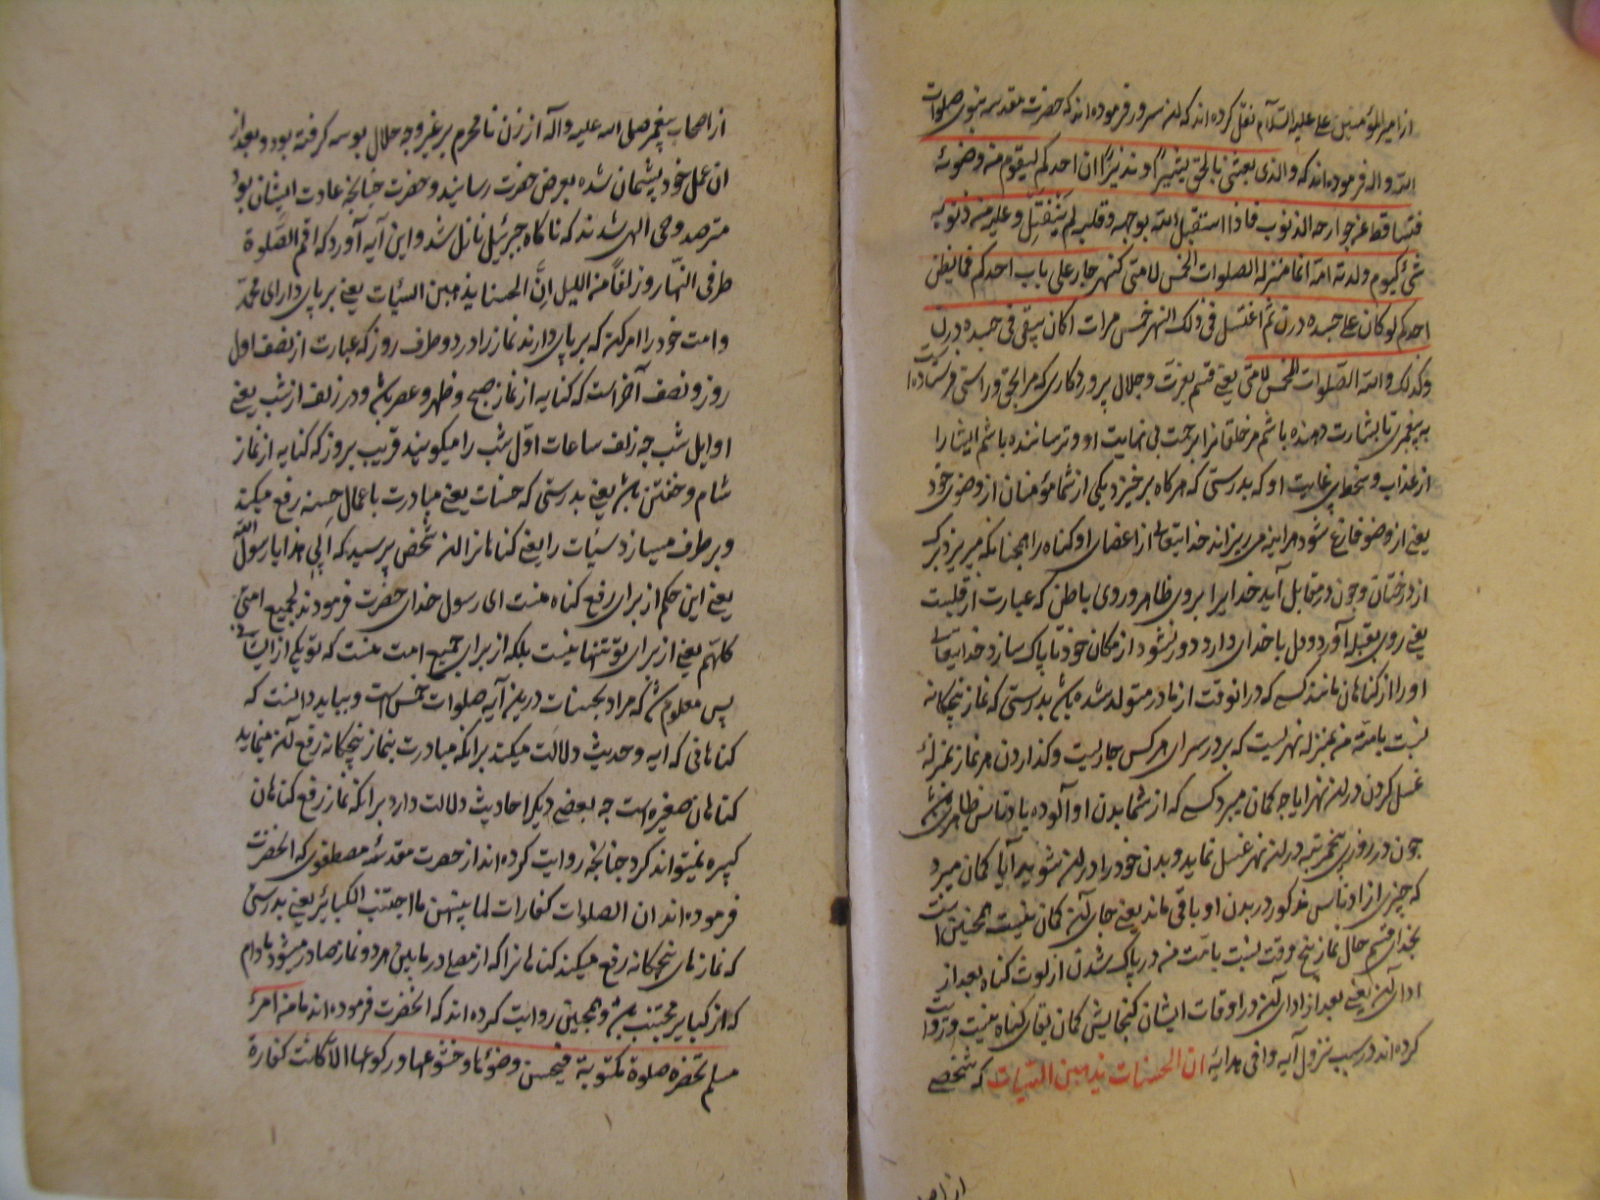 از امیرالمؤمنین علی علیه السلام نقل کرده اند که آن سرور فرموده اند که حضرت مقدسه نبوی صلوات
الله و اله فرموده اند که والذی بعثنی بالحق بشیرًا و نذیرًا ان احدکم لیقوم من وضوئه
فتساقط عن جوارحه الذنوب فاذا استقبل الله بوجهه و قلبه لم ینفتل و علیه من ذنوبه
شئ کیوم ولدته امه انما منزله الصلوات الخمس لامتی کنهر جار علی باب احدکم فما یظن
احدکم لو کان علی جسده درن ثم اغتسل فی ذلک النهر خمس مرات اکان یبقی فی جسده درن
وکذلک والله الصلوات الخمس لامتی یعنی قسم بعزت و جلال پروردکاری که مرا بحق و راستی فرستاده است
به پیغمبری تا بشارت دهنده باشم مر خلقانرا برحمت بی نهایت او و ترساننده باشم ایشانرا
از عذاب و سخط بی غایت او که بدرستی که هر کاه برخیزد یکی از شما مؤمنان از وضوی خود
یعنی از وضو فارغ شود هر آینه می ریزاند خدایتعالی از اعضای او کناه را همچنانکه میریزد برک
از درختان و چون در مقابل آید خدایرا بروی ظاهر و روی باطن که عبارت از قلبست
یعنی روی بقبله آورد و دل با خدای دارد دور نشود از مکان خود تا پاک سازد خدایتعالی
او را از کناهان مانند کسی که در آنوقت از مادر متولد شده باشد بدرستی که نماز پنجکانه
نسبت بامت من بمنزله نهریست که بر در سرای هر کس جاریست و کذاردن هر نماز بمنزلهٔ
غسل کردن در آن نهر ایا چه کمان میبرد کسی که از شما بدن او آلوده باد ناس ظاهری باشد
چون در روزی پنج مرتبه در آن نهر غسل نماید و بدن خود را در آن بشوید آیا کمان میبرد
که چیزی از ادناس مذکور در بدن او باقی ماند یعنی جای آن کمان نیست همچنین است
بخدا قسم حال نماز پنج وقت نسبت بامت من در پاک شدن از لوث کناه بعد از
ادای آن یعنی بعد از ادای آن در اوقات ایشان کنجایش کمان بقای کناه نیست و روایت
کرده اند در سبب نزول آیه وافی هدایهٔ ان الحسنات یذهبن السیئات که شخصی
از اصحاب پیغمبر صلی الله علیه واله از زن نامحرم بر غیر وجه حلال بوسه کرفته بود و بعد از
ان عمل خود پشیمان شده بعرض حضرت رسانید و حضرت چنانچه عادت ایشان بود
مترصد وحی الهی شدند که ناکاه جبرئیل نازل شد و این آیه آورد که اقم الصلوة
طرفی النهار و زلفًا من اللیل انَّ الحسنات یذهبن السیئات یعنی بر پای دار ای محمد
و امت خود را امر کن که بر پای دارند نماز را در دو طرف روز که عبارت از نصف اول
روز و نصف آخر است که کنایه از نماز صبح و ظهر و عصر باشد و در زلف از شب یعنی
اوایل شب چه زلف ساعات اوّل شب را میکویند قریب بروز که کنایه از نماز
شام و خفتن باشد یعنی بدرستی که حسنات یعنی مبادرت باعمال حسنه رفع میکند
و بر طرف میسازد سیئات را یعنی کناهانرا آن شخص پرسید که الی هذا یا رسول الله
یعنی این حکم از برای رفع کناه منست ای رسول خدای حضرت فرمودند لجمیع امتی
کلهم یعنی از برای تو تنها نیست بلکه از برای جمیع امت منست که تو یکی از ایشانی
پس معلوم شد که مراد بحسنات درین آیه صلوات خمس است و بباید دانست که
کناهانی که ایه و حدیث دلالت میکند برانکه مبادرت بنماز پنجکانه رفع آن مینماید
کناهان صغیره است چه بعضی دیکر احادیث دلالت دارد برانکه نماز رفع کناهان
کبیره نمیتواند کرد چنانچه روایت کرده اند از حضرت مقدسهٔ مصطفوی که انحضرت
فرموده اند ان الصلوات کفارات لما بینهن ما اجتنب الکبائر یعنی بدرستی
که نمازهای پنجکانه رفع میکند کناهانرا که از مصلی در مابین هر دو نماز صادر میشود مادام
که از کبایر مجتنب باشد و همچنین روایت کرده اند که انحضرت فرموده اند ما من امرئ
مسلم تحضره صلوة مکتوبة فیحسن وضوئها و خشوعها و رکوعها الا کانت کفارة